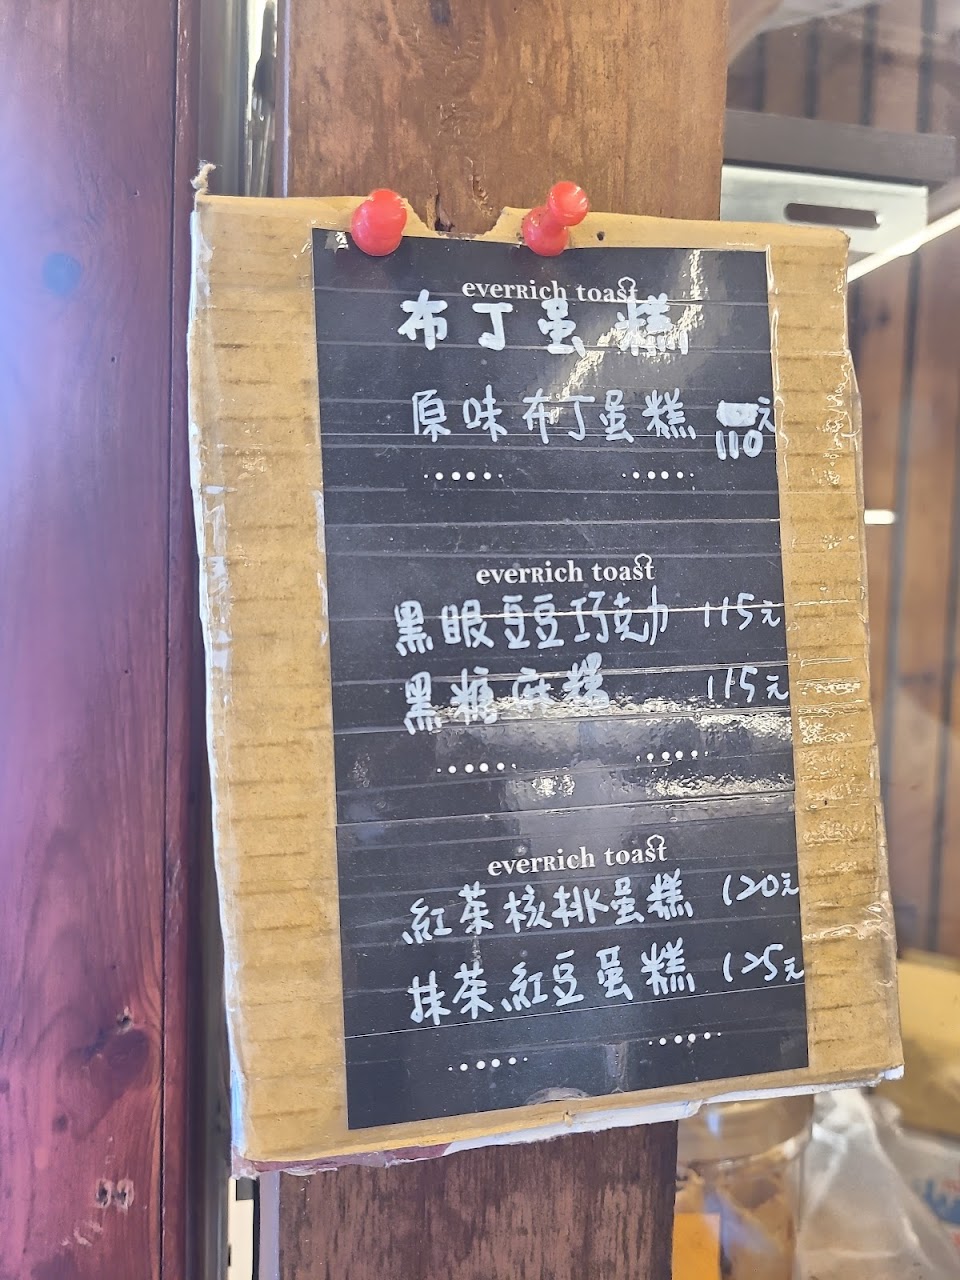 everRich toast
布丁蛋糕
原味布丁蛋糕 110元
everRich toast
黑眼豆豆巧克力 115元
黑糖麻糬 115元
everRich toast
紅茶核桃蛋糕 120元
抹茶紅豆蛋糕 125元